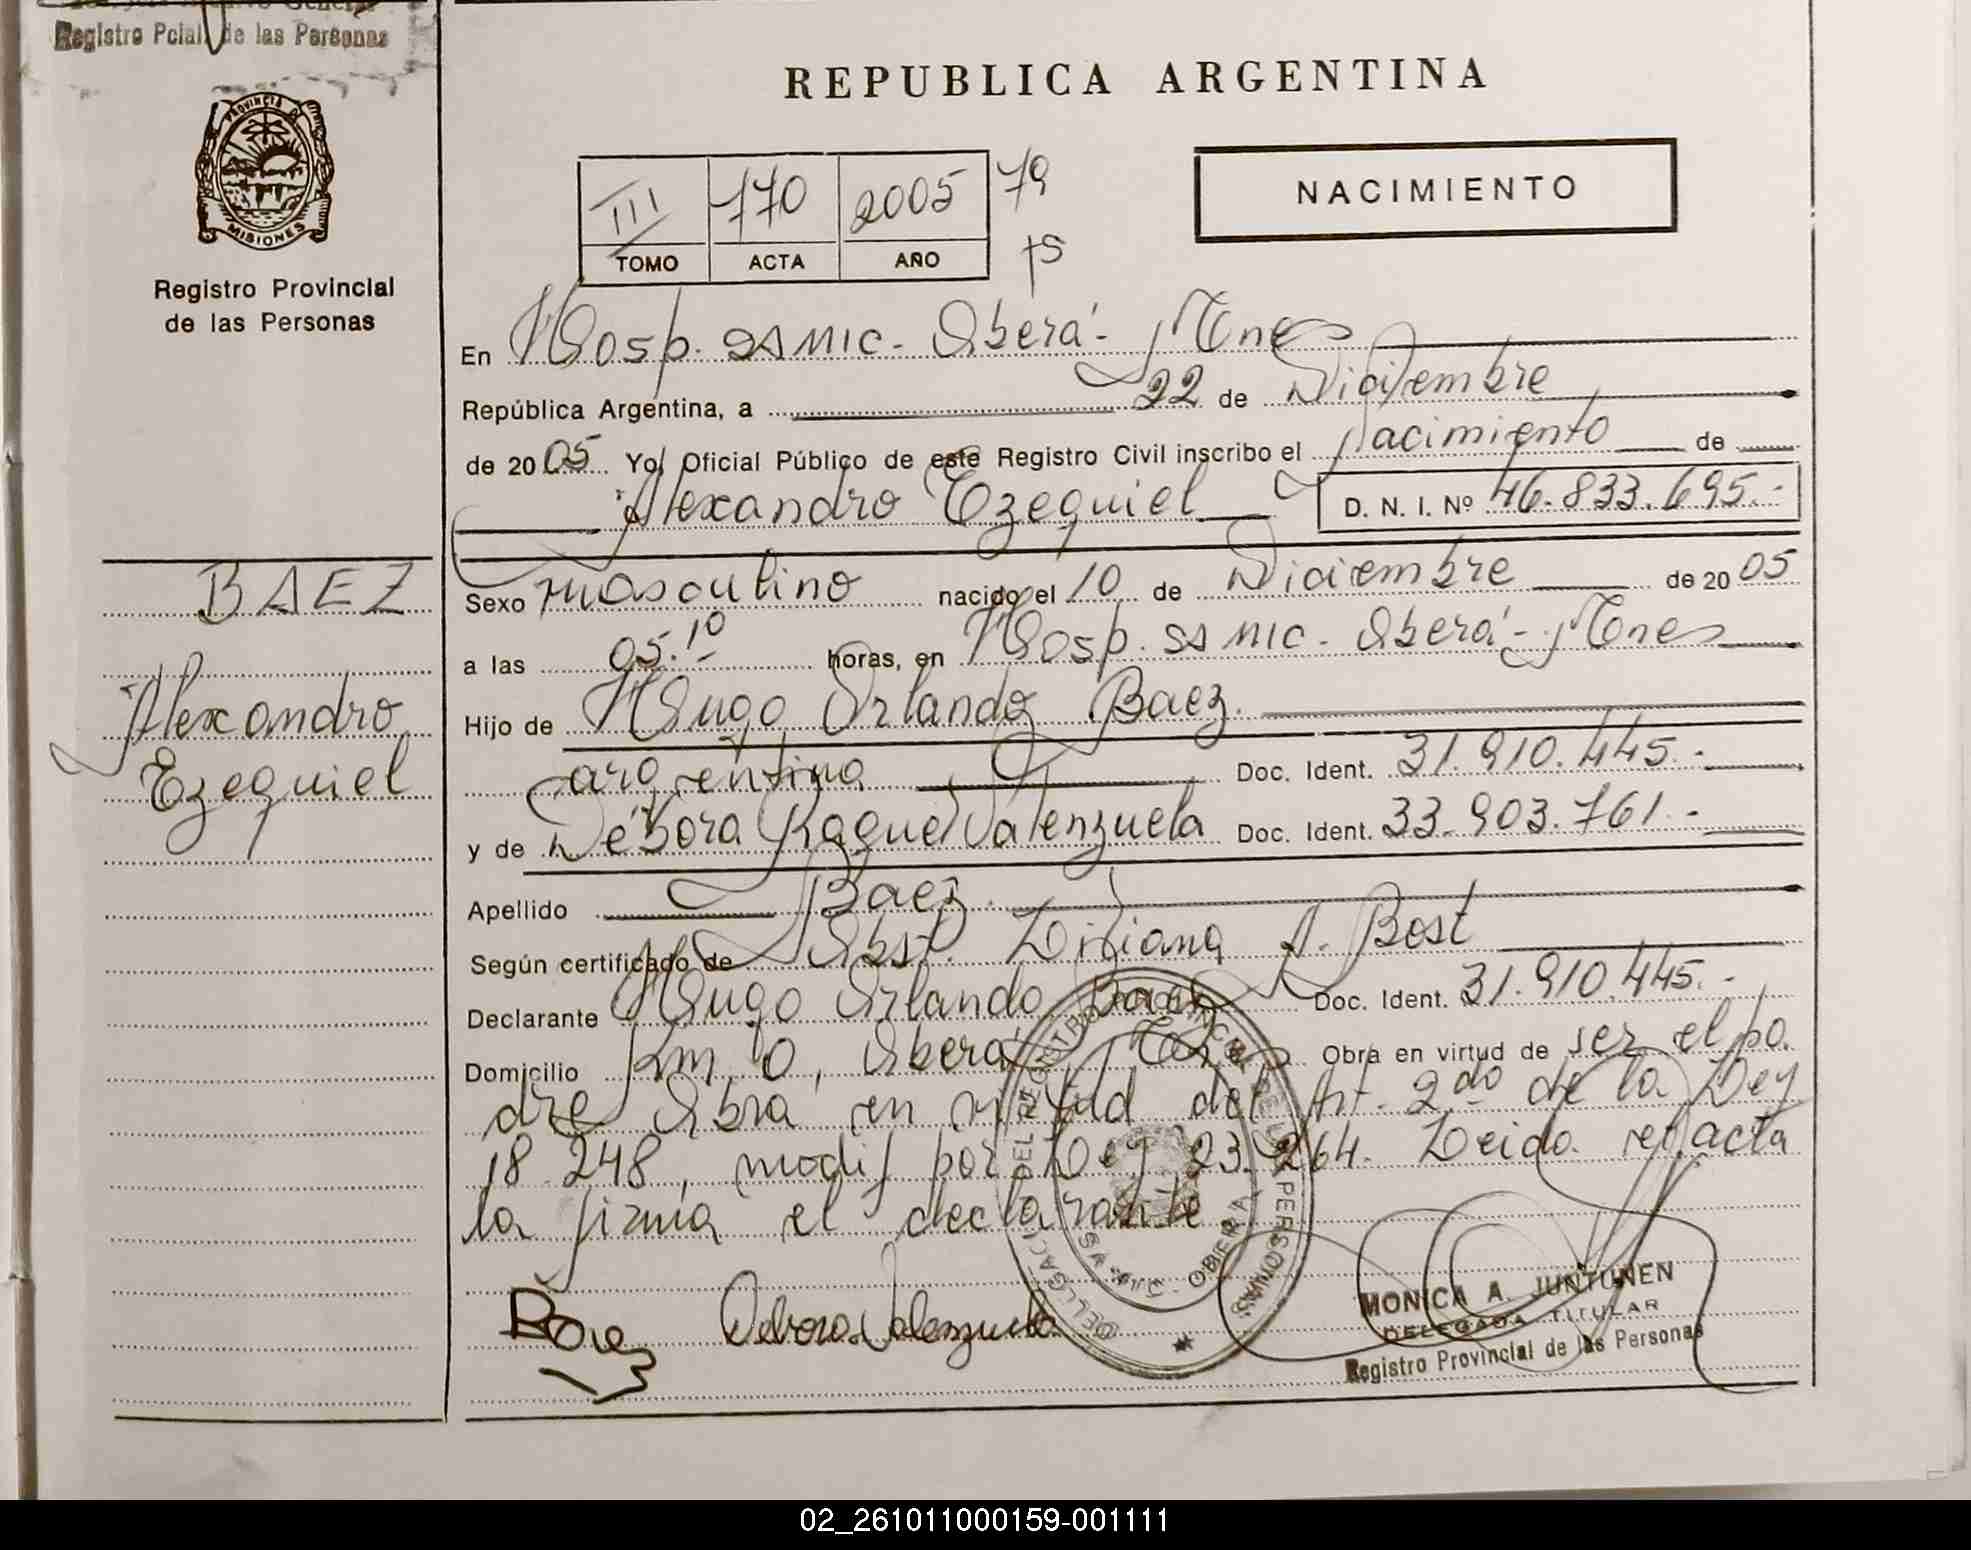 Registro Pcial de las Personas
PROVINCIA DE
MISIONES
Registro Provincial
de las Personas
BAEZ
Alexandro
Ezequiel
REPUBLICA ARGENTINA
III 770 2005 79
TOMO ACTA AÑO 75
NACIMIENTO
En Hosp. SAMIC - Oberá - Mnes
República Argentina, a 22 de Diciembre
de 2005 Yo, Oficial Público de este Registro Civil inscribo el Nacimiento de
Alexandro Ezequiel D. N. I. Nº 46.833.695.-
Sexo masculino nacido el 10 de Diciembre de 2005
a las 05.10 horas, en Hosp. SAMIC - Oberá - Mnes
Hijo de Hugo Orlando Baez.
argentina Doc. Ident. 31.910.445.-
y de Débora Raquel Valenzuela Doc. Ident. 33.903.761.-
Apellido Baez.
Según certificado de Obst. Liliana A. Bost
Declarante Hugo Orlando Baez Doc. Ident. 31.910.445.-
Domicilio Km 0, Oberá Obra en virtud de ser el pa.
dre Obra en virtud del Art. 2do de la Ley
18.248, modif por Ley 23.264. Leida el acta
la firma el declarante
Baez Debora Valenzuela
DELEGACION DEL REGISTRO PROVINCIAL DE LAS PERSONAS
OBERA
MONICA A. JUNTUNEN
DELEGADA TITULAR
Registro Provincial de las Personas
02_261011000159-001111